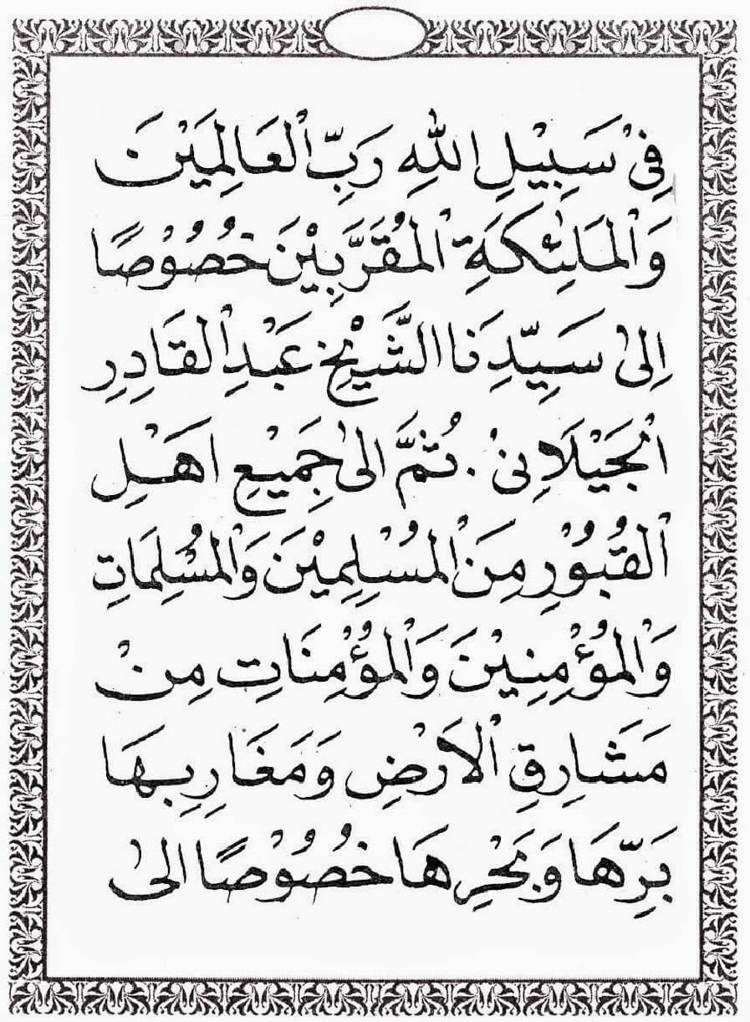 فِيْ سَبِيْلِ اللهِ رَبِّ الْعَالَمِيْنَ
وَالْمَلٰئِكَةِ الْمُقَرَّبِيْنَ خُصُوْصًا
اِلٰى سَيِّدِنَا الشَّيْخِ عَبْدِ الْقَادِرِ
الْجَيْلَانِىْ . ثُمَّ اِلٰى جَمِيْعِ اَهْلِ
الْقُبُوْرِ مِنَ الْمُسْلِمِيْنَ وَالْمُسْلِمَاتِ
وَالْمُؤْمِنِيْنَ وَالْمُؤْمِنَاتِ مِنْ
مَشَارِقِ الْاَرْضِ وَمَغَارِبِهَا
بَرِّهَا وَبَحْرِهَا خُصُوْصًا اِلٰى